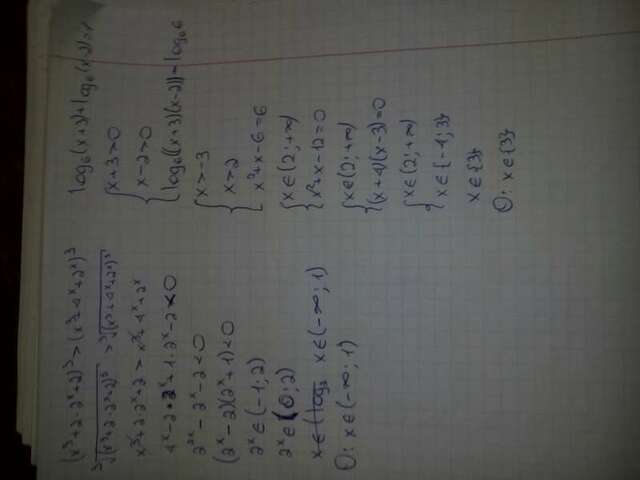 (x³+2·2ˣ+2)³>(x³+4ˣ+2ˣ)³
³√(x³+2·2ˣ+2)³ > ³√(x³+4ˣ+2ˣ)³
x³+2·2ˣ+2 > x³+4ˣ+2ˣ
2²ˣ-2ˣ-2<0
(2ˣ-2)(2ˣ+1)<0
2ˣ∈(-1;2)
2ˣ∈(0;2)
x∈(-∞;1)
О: x∈(-∞;1)
log₆(x+3)+log₆(x-2)=1
{x+3>0
x-2>0
log₆((x+3)(x-2))=log₆6
{x>-3
x>2
x²+x-6=6
{x∈(2;+∞)
x²+x-12=0
{x∈(2;+∞)
(x+4)(x-3)=0
{x∈(2;+∞)
x∈{-4;3}
x∈{3}
О: x∈{3}